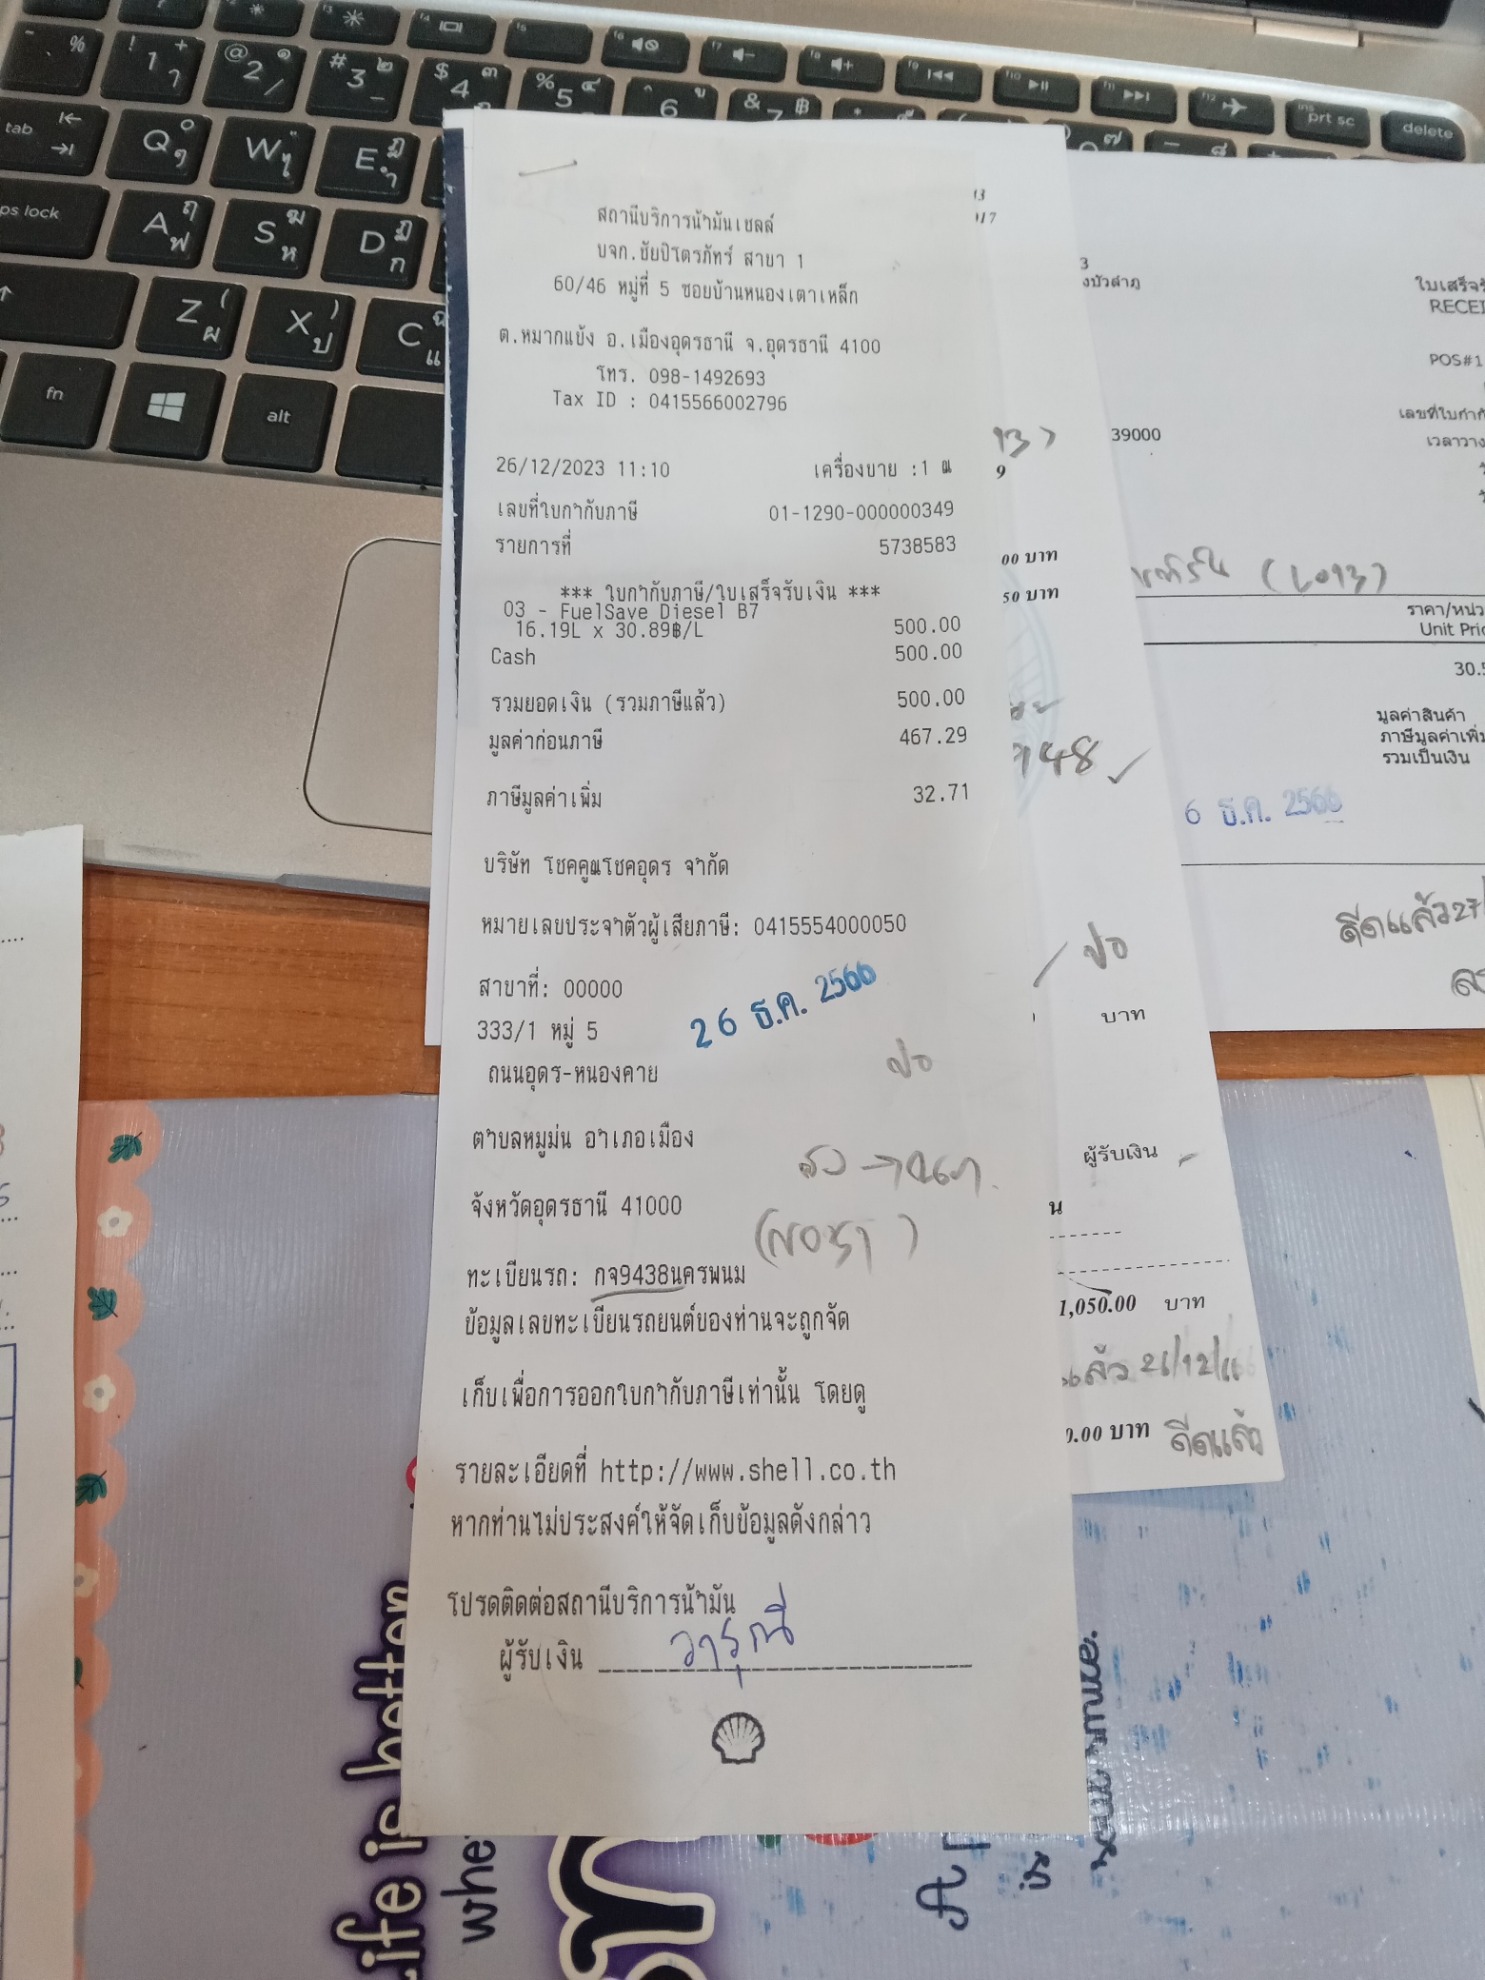 สถานีบริการน้ำมันเชลล์
บจก.ชัยปิโตรภัทร์ สาขา 1
60/46 หมู่ที่ 5 ซอยบ้านหนองเตาเหล็ก
ต.หมากแข้ง อ.เมืองอุดรธานี จ.อุดรธานี 4100
โทร. 098-1492693
Tax ID : 0415566002796
26/12/2023 11:10 เครื่องขาย :1 ณ
เลขที่ใบกำกับภาษี 01-1290-000000349
รายการที่ 5738583
*** ใบกำกับภาษี/ใบเสร็จรับเงิน ***
03 - FuelSave Diesel B7
16.19L x 30.89฿/L 500.00
Cash 500.00
รวมยอดเงิน (รวมภาษีแล้ว) 500.00
มูลค่าก่อนภาษี 467.29
ภาษีมูลค่าเพิ่ม 32.71
บริษัท โชคคูณโชคอุดร จำกัด
หมายเลขประจำตัวผู้เสียภาษี: 0415554000050
สาขาที่: 00000
26 ธ.ค. 2566
333/1 หมู่ 5
ถนนอุดร-หนองคาย
ปอ
ตำบลหมูม่น อำเภอเมือง
จังหวัดอุดรธานี 41000
ทะเบียนรถ: กจ9438นครพนม
ข้อมูลเลขทะเบียนรถยนต์ของท่านจะถูกจัด
เก็บเพื่อการออกใบกำกับภาษีเท่านั้น โดยดู
รายละเอียดที่ http://www.shell.co.th
หากท่านไม่ประสงค์ให้จัดเก็บข้อมูลดังกล่าว
โปรดติดต่อสถานีบริการน้ำมัน
ผู้รับเงิน วารุณี
00 บาท
50 บาท
748
ปอ
บาท
ผู้รับเงิน
1,050.00 บาท
0.00 บาท คีดแล้ว
RECEI
POS#1
39000
ราคา/หน่ว
Unit Pric
30.5
มูลค่าสินค้า
ภาษีมูลค่าเพิ่ม
รวมเป็นเงิน
6 ธ.ค. 2566
คีดแล้ว 27/
Life is better
whe
tab
ps lock
fn
alt
prt sc
delete